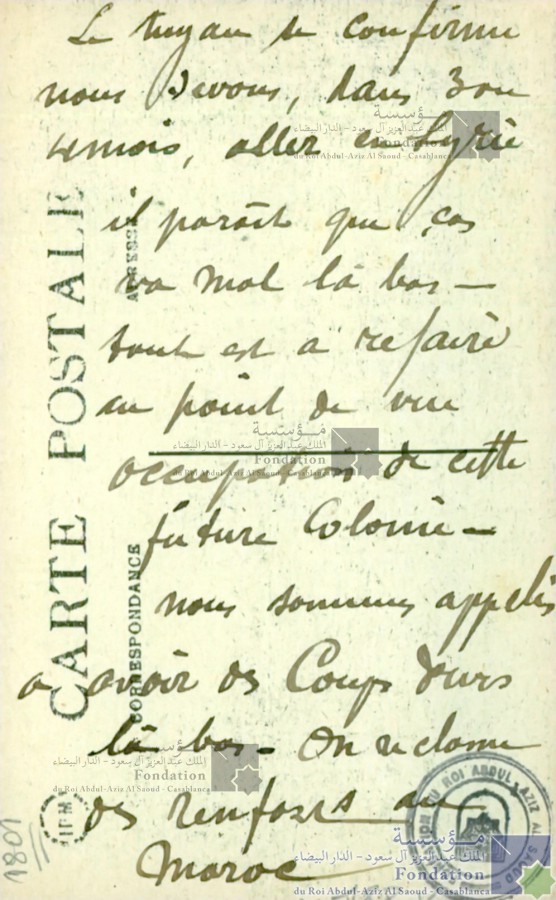 Le tuyau se confirme
nous devons, dans 3 ou
4 mois, aller en Syrie
il paraît que ças
va mal là bas —
tout est à refaire
au point de vue
occupation de cette
future Colonie —
nous sommes appelés
a avoir des Coups durs
là bas — On réclame
des renforts au
Maroc
CARTE POSTALE
CORRESPONDANCE
ADRESSE
IPM
1801
مؤسسة
الملك عبدالعزيز آل سعود - الدار البيضاء
Fondation
du Roi Abdul-Aziz Al Saoud - Casablanca
مؤسسة
الملك عبدالعزيز آل سعود - الدار البيضاء
Fondation
du Roi Abdul-Aziz Al Saoud - Casablanca
الملك عبدالعزيز آل سعود - الدار البيضاء
Fondation
du Roi Abdul-Aziz Al Saoud - Casablanca
DU ROI ABDUL AZIZ AL SAOUD
مؤسسة
الملك عبدالعزيز آل سعود - الدار البيضاء
Fondation
du Roi Abdul-Aziz Al Saoud - Casablanca